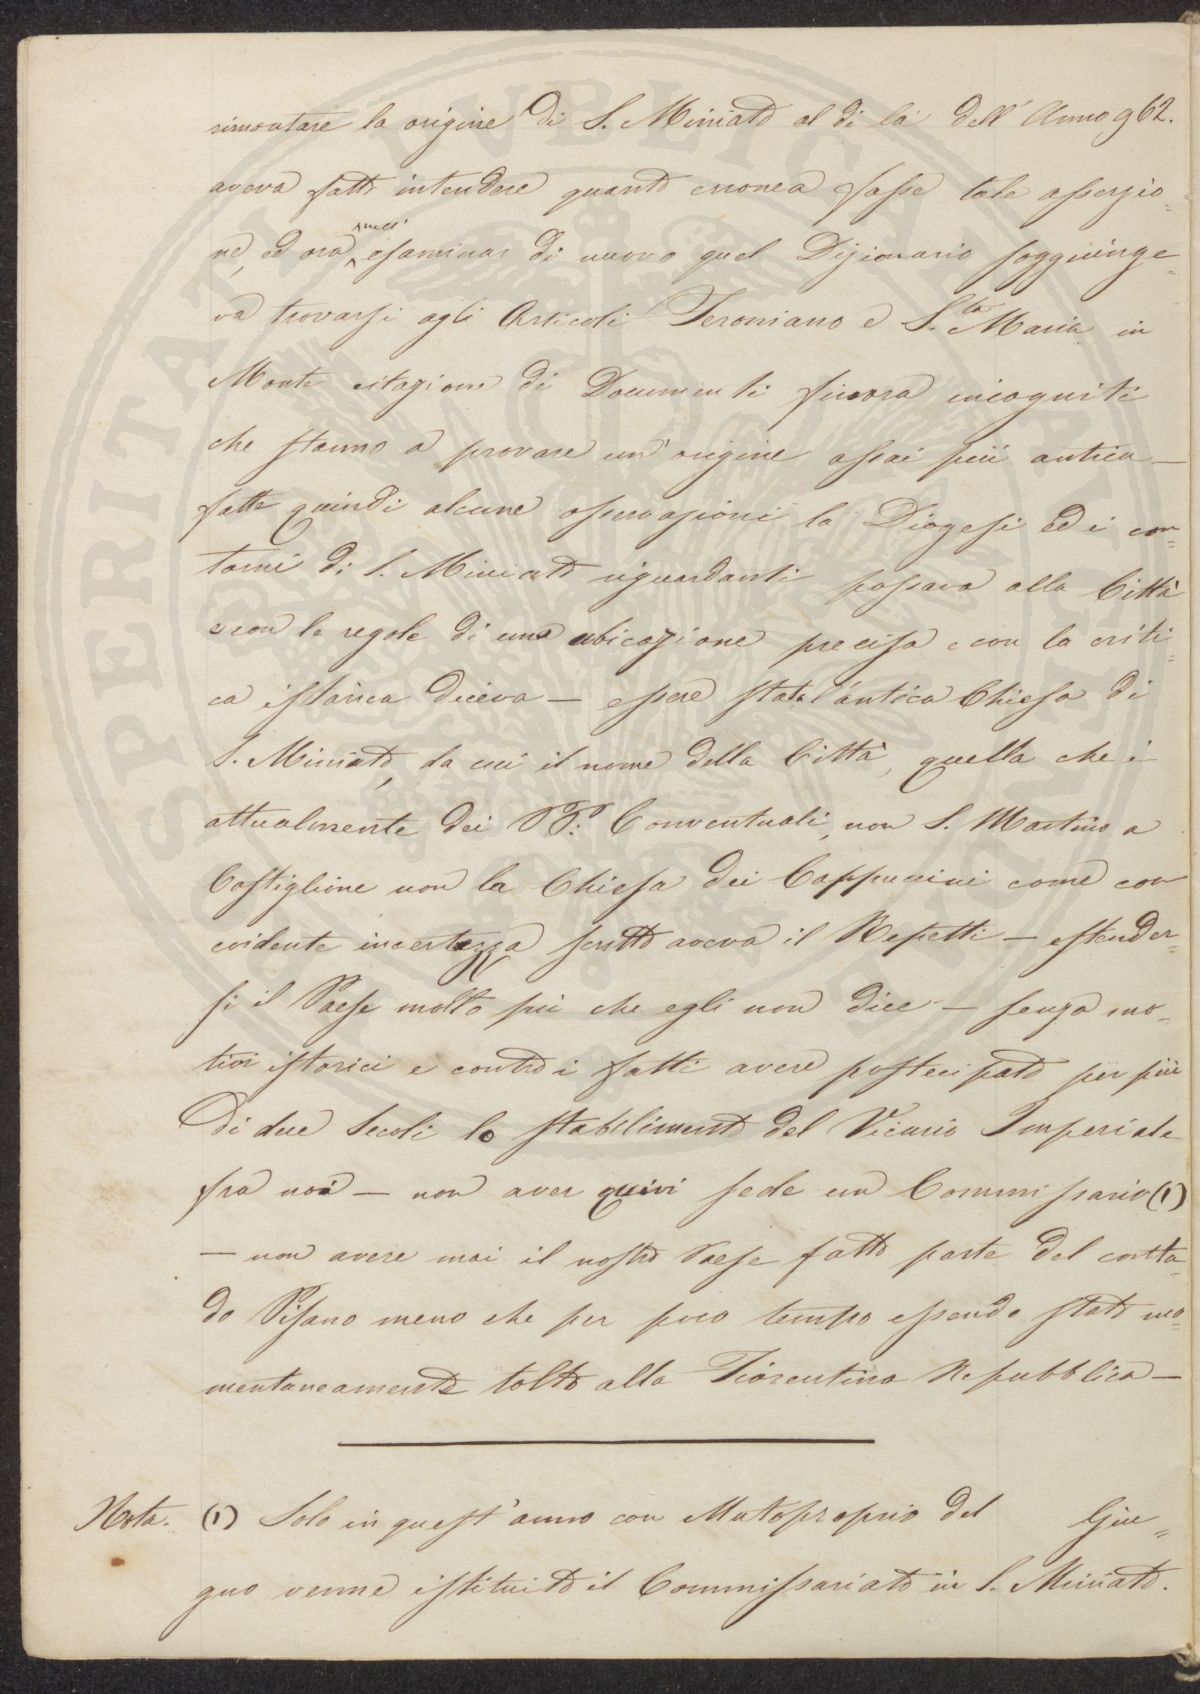 rimontare la origine di S. Miniato al di là dell'Anno 962.
aveva fatto intendere quanto erronea fosse tale asserzio=
ne, ed ora, esaminar di nuovo quel Dizionario soggiunge=
va trovarsi agli Articoli Feroniano e S.ta Maria in
Monte citazione di Documenti finora incogniti
che stanno a provare un'origine assai più antica —
fatte quindi alcune osservazioni la Diogesi ed i con=
torni di S. Miniato riguardanti passava alla Città
e con le regole di una ubicazione precisa e con la criti=
ca istorica diceva — essere stata l'antica Chiesa di
S. Miniato, da cui il nome della Città, quella che è
attualmente dei PP: Conventuali, non S. Martino a
Castiglione non la Chiesa dei Cappuccini come con
evidente incertezza scritto aveva il Repetti — estender=
si il Paese molto più che egli non dice — senza mo=
tivi istorici e contro i fatti avere postecipato per più
di due Secoli lo stabilimento del Vicario Imperiale
fra noi — non aver quivi sede un Commissario (1)
— non avere mai il nostro Paese fatto parte del conta=
do Pisano meno che per poco tempo essendo stato mo=
mentaneamente tolto alla Fiorentina Repubblica —
Nota. (1) Solo in quest'anno con Motoproprio del Giu=
gno venne istituito il Commissariato in S. Miniato.
SPERITATI PVBLICAE